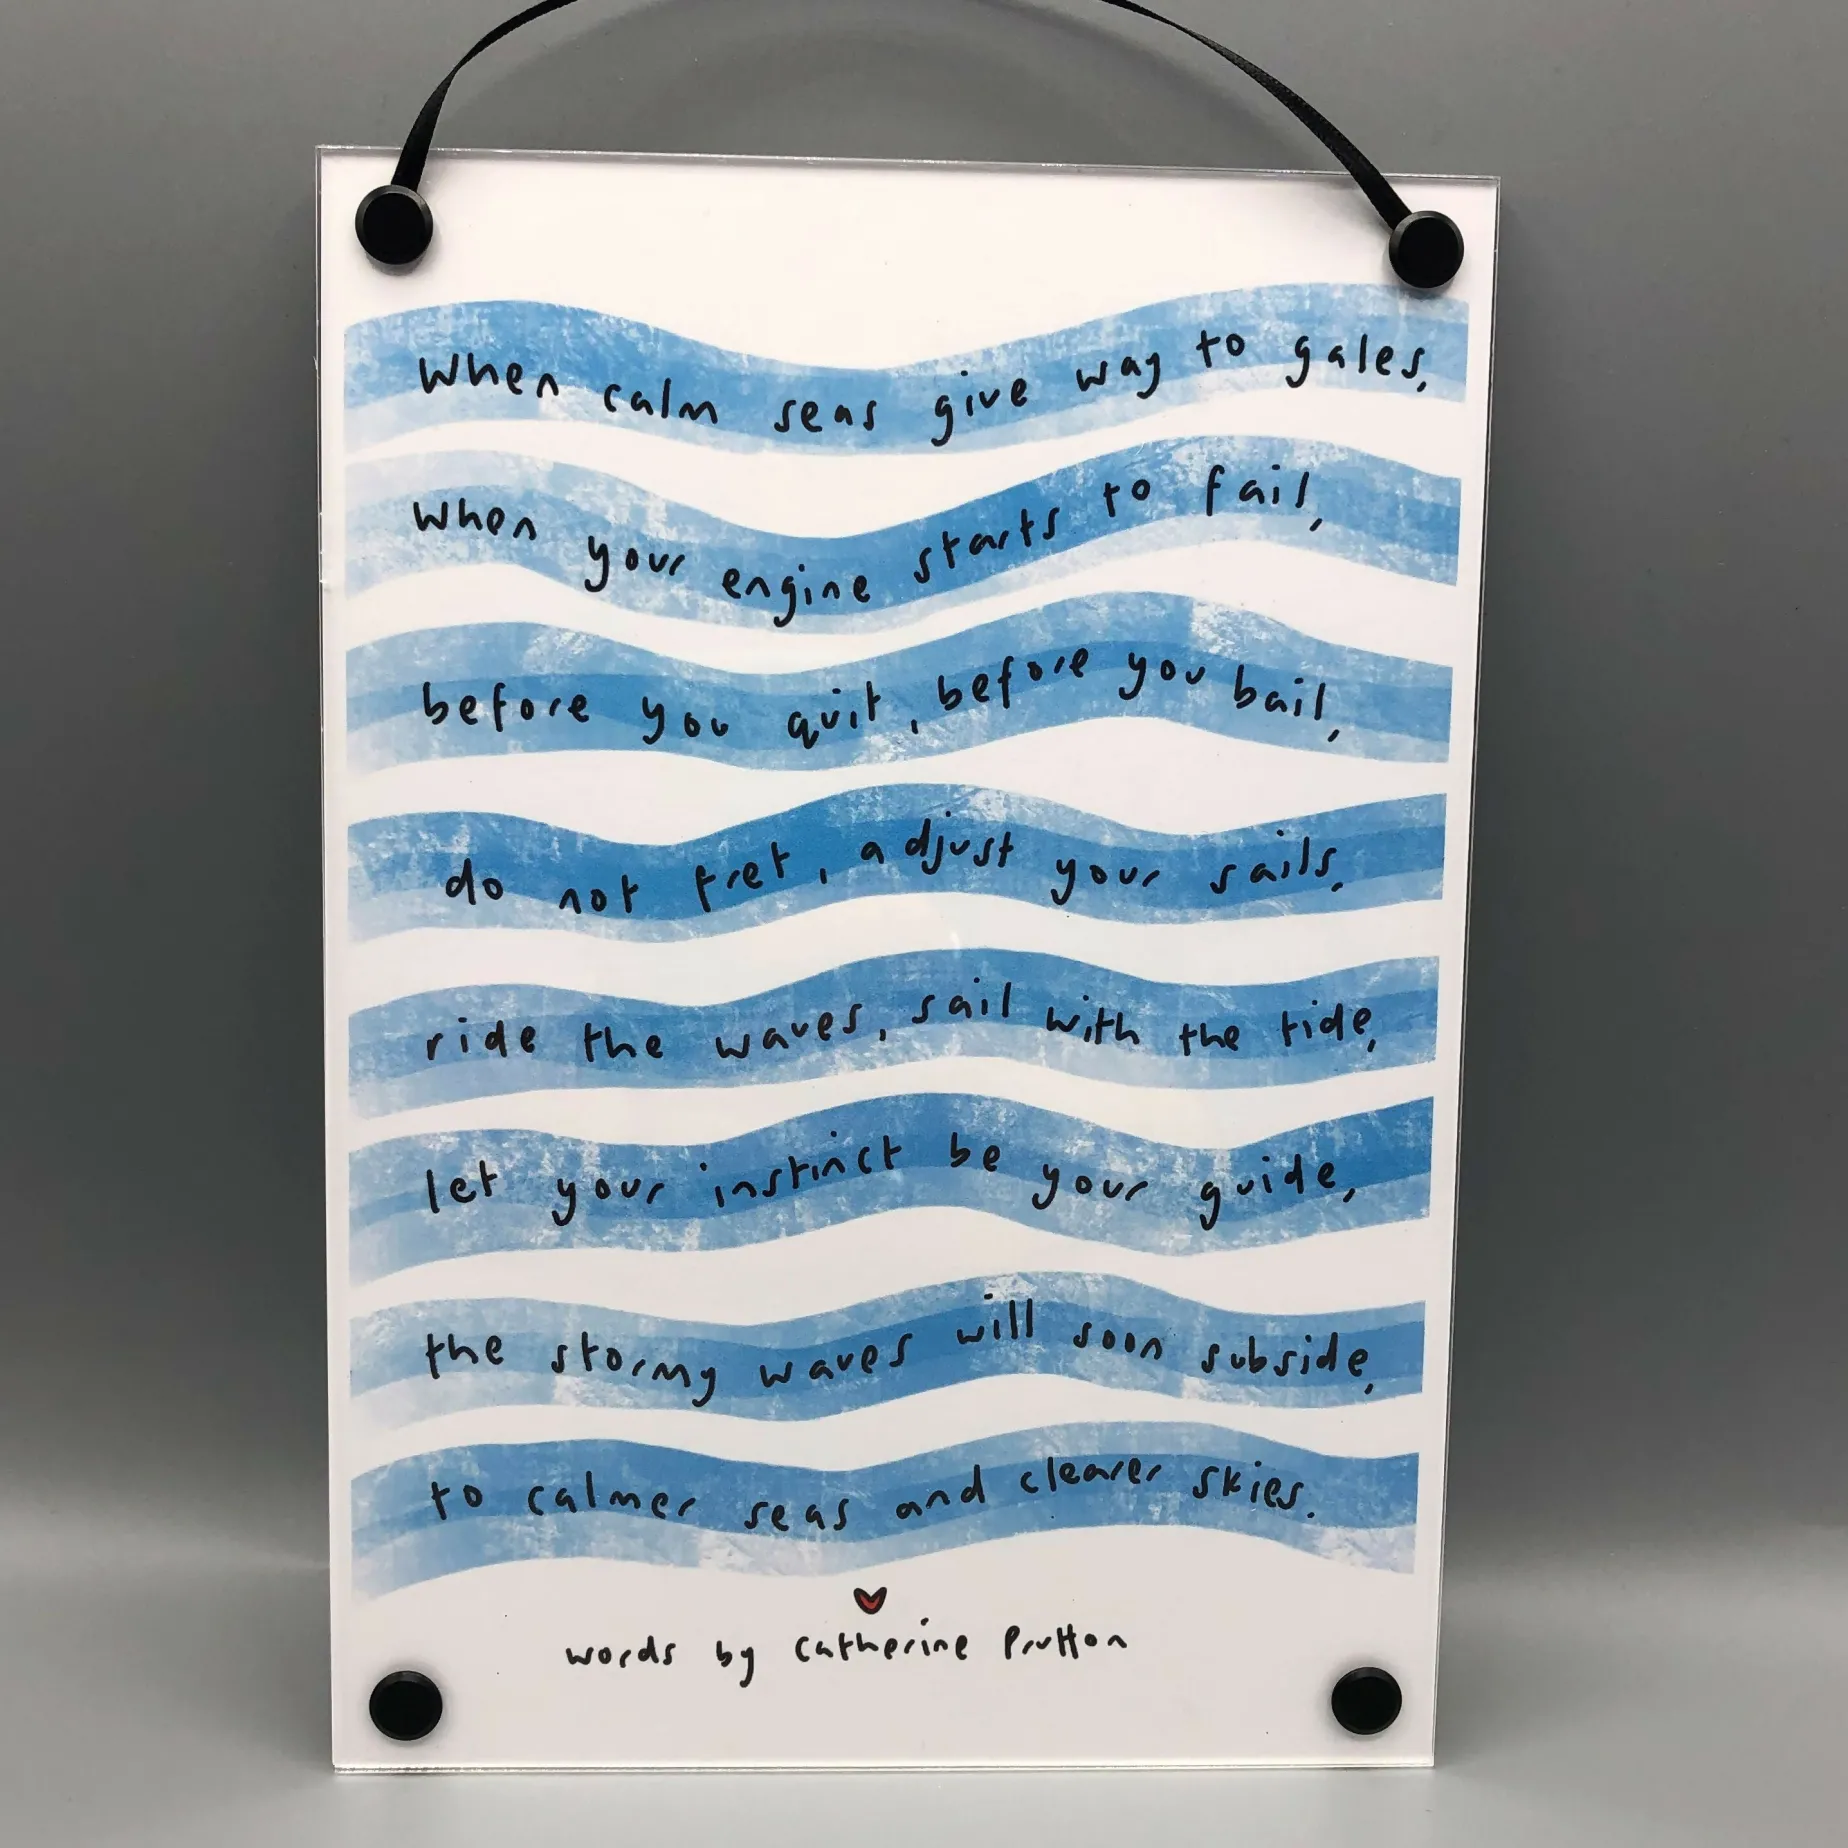 When calm seas give way to gales,
when your engine starts to fail,
before you quit, before you bail,
do not fret, adjust your sails.
ride the waves, sail with the tide,
let your instinct be your guide,
the stormy waves will soon subside,
to calmer seas and clearer skies.
words by Catherine Prutton